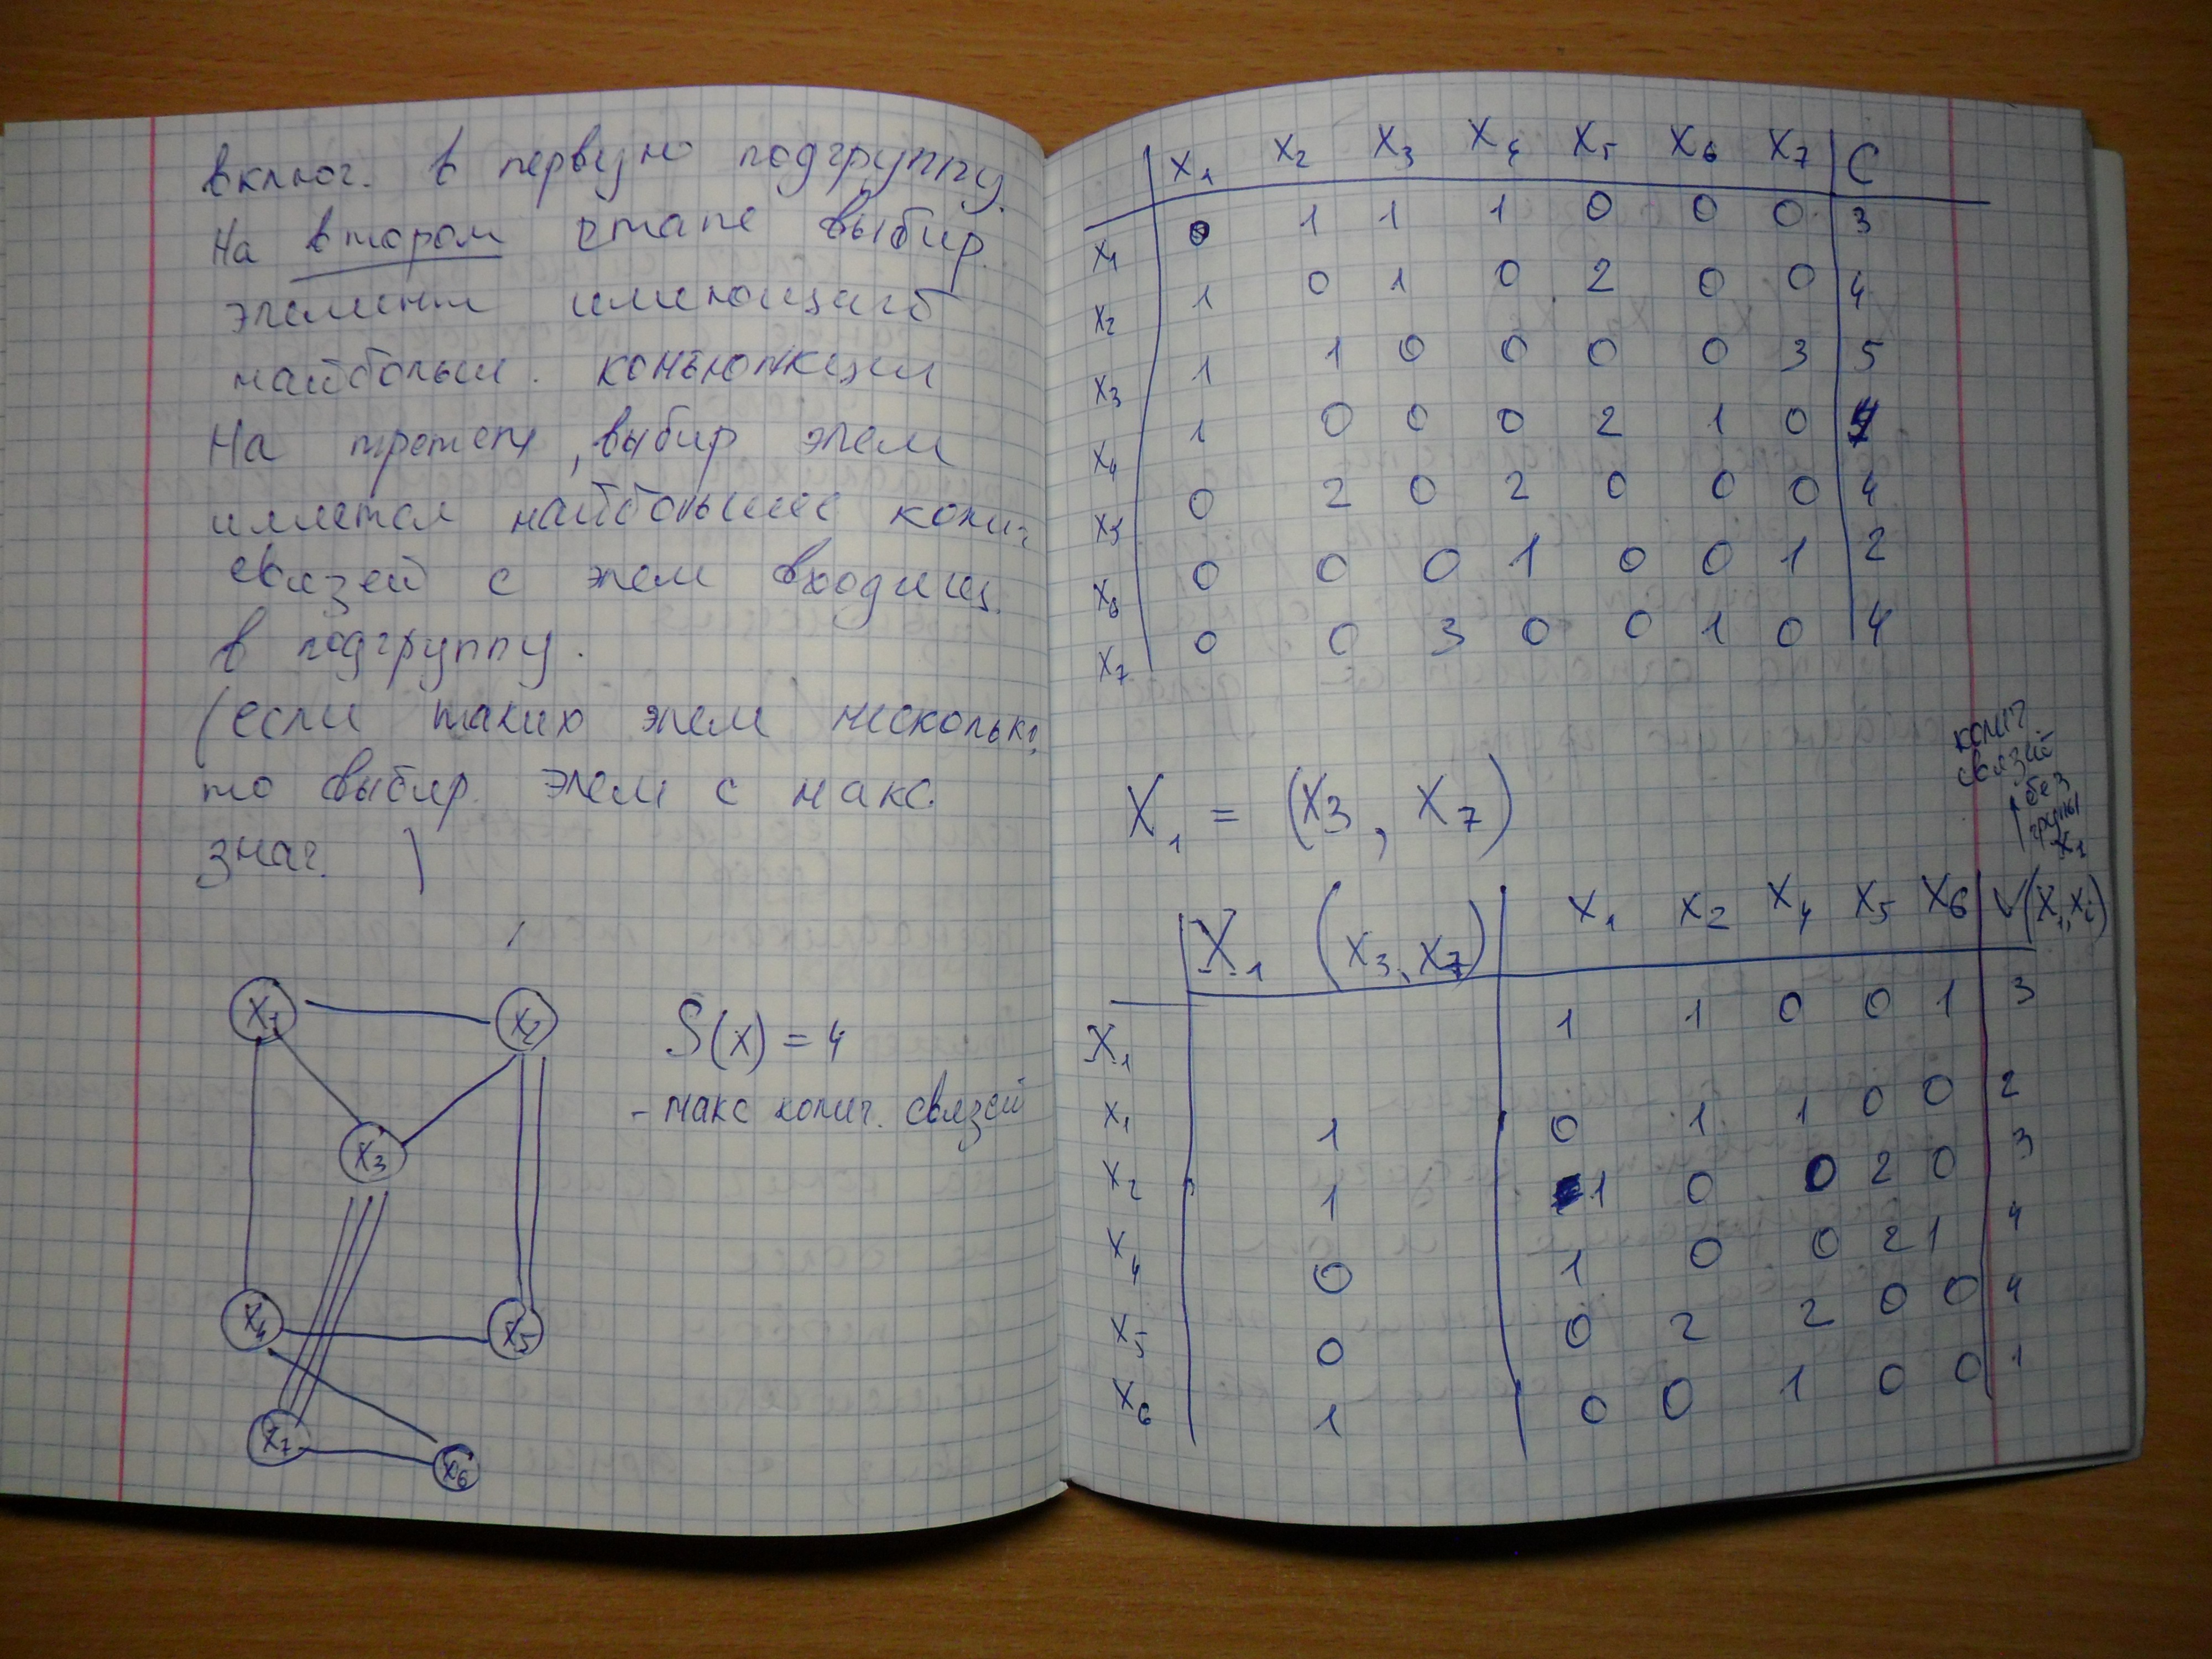 включ. в первую подгруппу.
На втором этапе выбир.
элемент имеющий
найбольш. конъюнкции
На третем, выбир элем
имметал найбольшее колич
связей с элем входищ.
в подгруппу.
(если таких элем несколько,
то выбир. элем с макс.
знач. )
X1 X2
X3
X4 X5
X7 X6
S(x) = 4
- макс колич. связей
X1 X2 X3 X4 X5 X6 X7 C
X1 0 1 1 1 0 0 0 3
X2 1 0 1 0 2 0 0 4
X3 1 1 0 0 0 0 3 5
X4 1 0 0 0 2 1 0 4
X5 0 2 0 2 0 0 0 4
X6 0 0 0 1 0 0 1 2
X7 0 0 3 0 0 1 0 4
X1 = (X3, X7)
колич
связей
без
групы
X1
X1 (X3, X7) X1 X2 X4 X5 X6 V(X1, Xi)
X1 1 1 0 0 1 3
X1 1 0 1 1 0 0 2
X2 1 1 0 0 2 0 3
X4 0 1 0 0 2 1 4
X5 0 0 2 2 0 0 4
X6 1 0 0 1 0 0 1